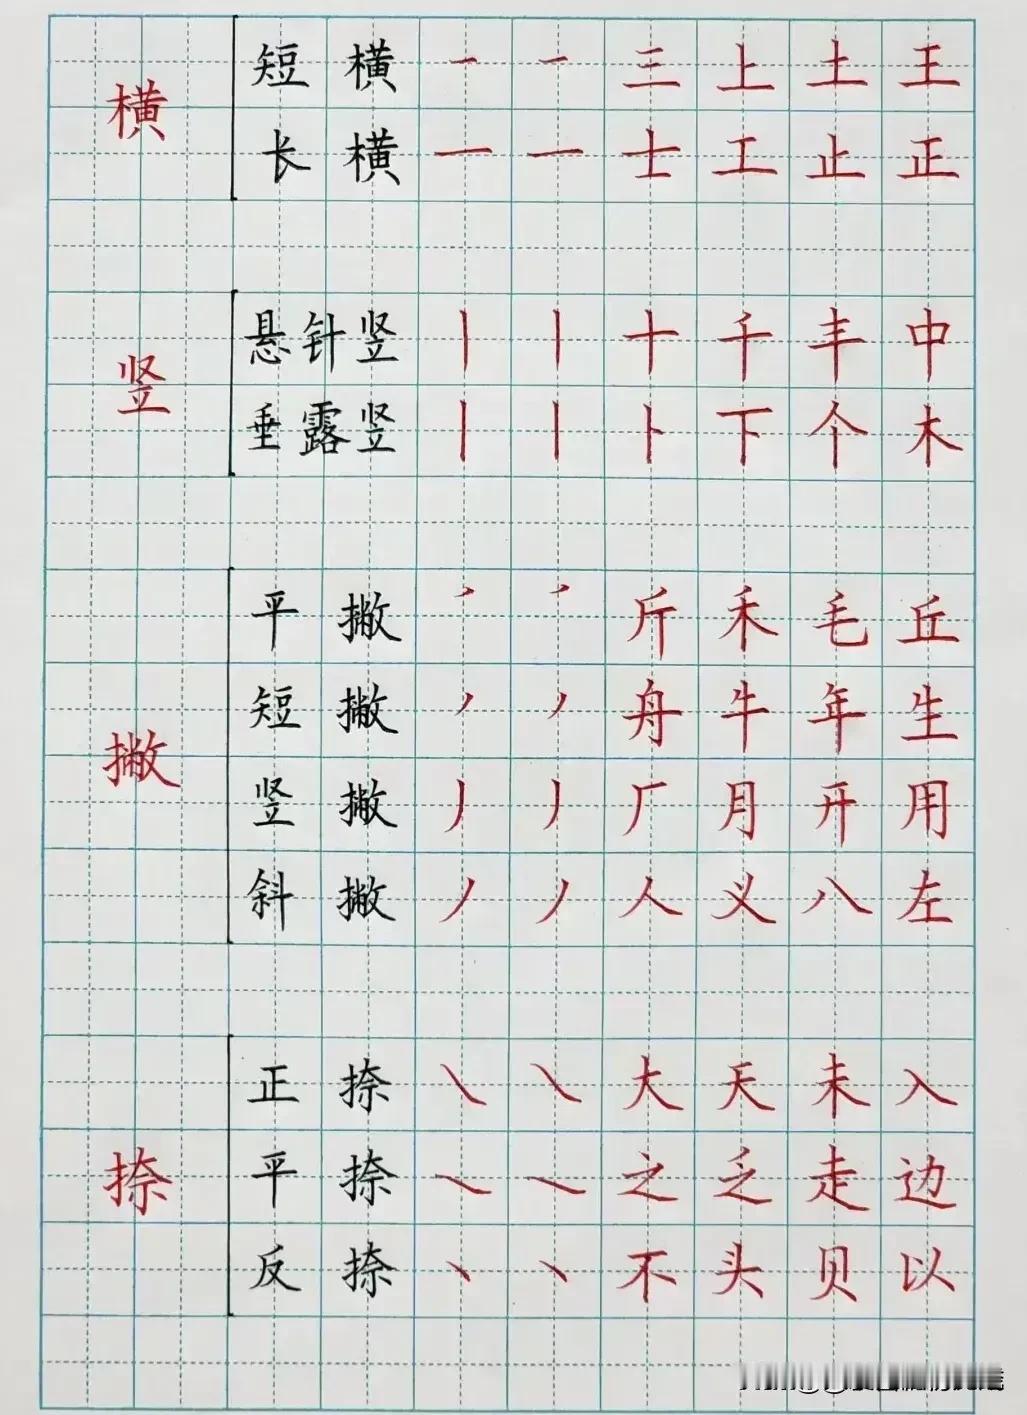 横
短横 一 一 三 上 土 王
长横 一 一 士 工 止 正
竖
悬针竖 丨 丨 十 千 丰 中
垂露竖 丨 丨 卜 下 个 木
撇
平撇 ㇒ ㇒ 斤 禾 毛 丘
短撇 ㇒ ㇒ 舟 牛 年 生
竖撇 丿 丿 厂 月 开 用
斜撇 丿 丿 人 义 八 左
捺
正捺 ㇏ ㇏ 大 天 未 入
平捺 ㇏ ㇏ 之 乏 走 边
反捺 丶 丶 不 头 贝 以